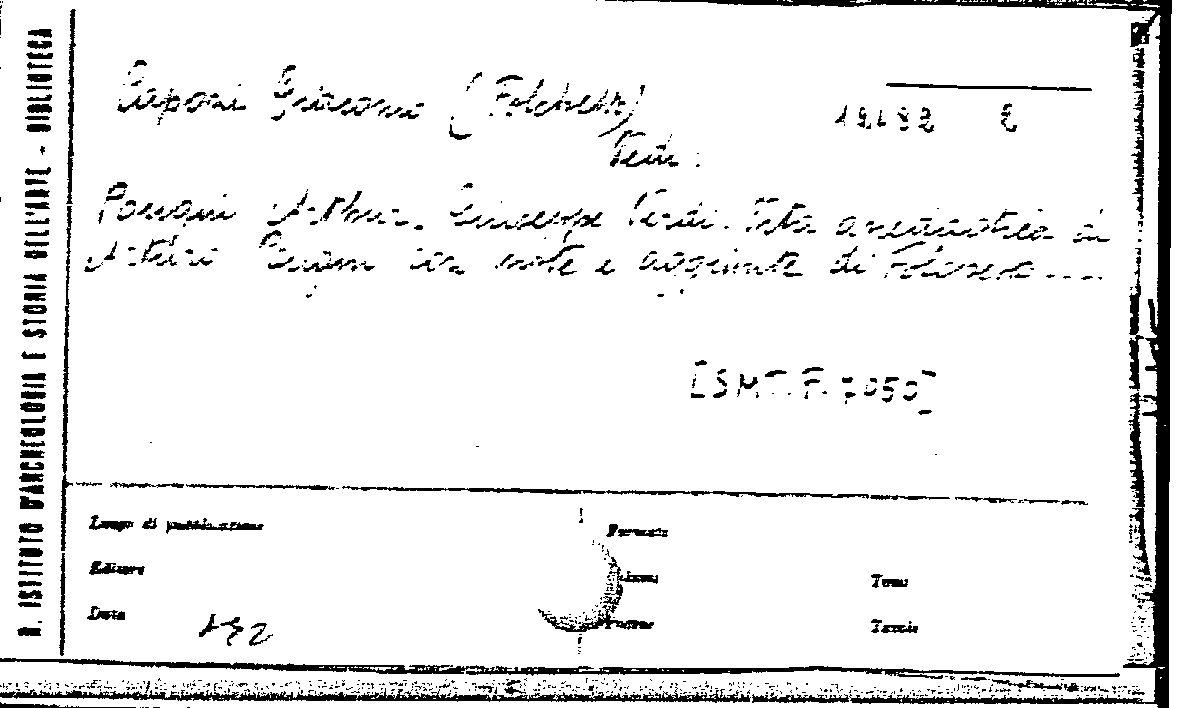 R. ISTITUTO D'ARCHEOLOGIA E STORIA DELL'ARTE - BIBLIOTECA
Caponi Giacomo (Folchetto)
Vedi:
Pougin Arthur. Giuseppe Verdi. Vita aneddotica di
Arturo Pougin con note e aggiunte di Folchetto....
[SMT. F. 7050]
Luogo di pubblicazione
Formato
Editore
Tomo
Data
Tavole